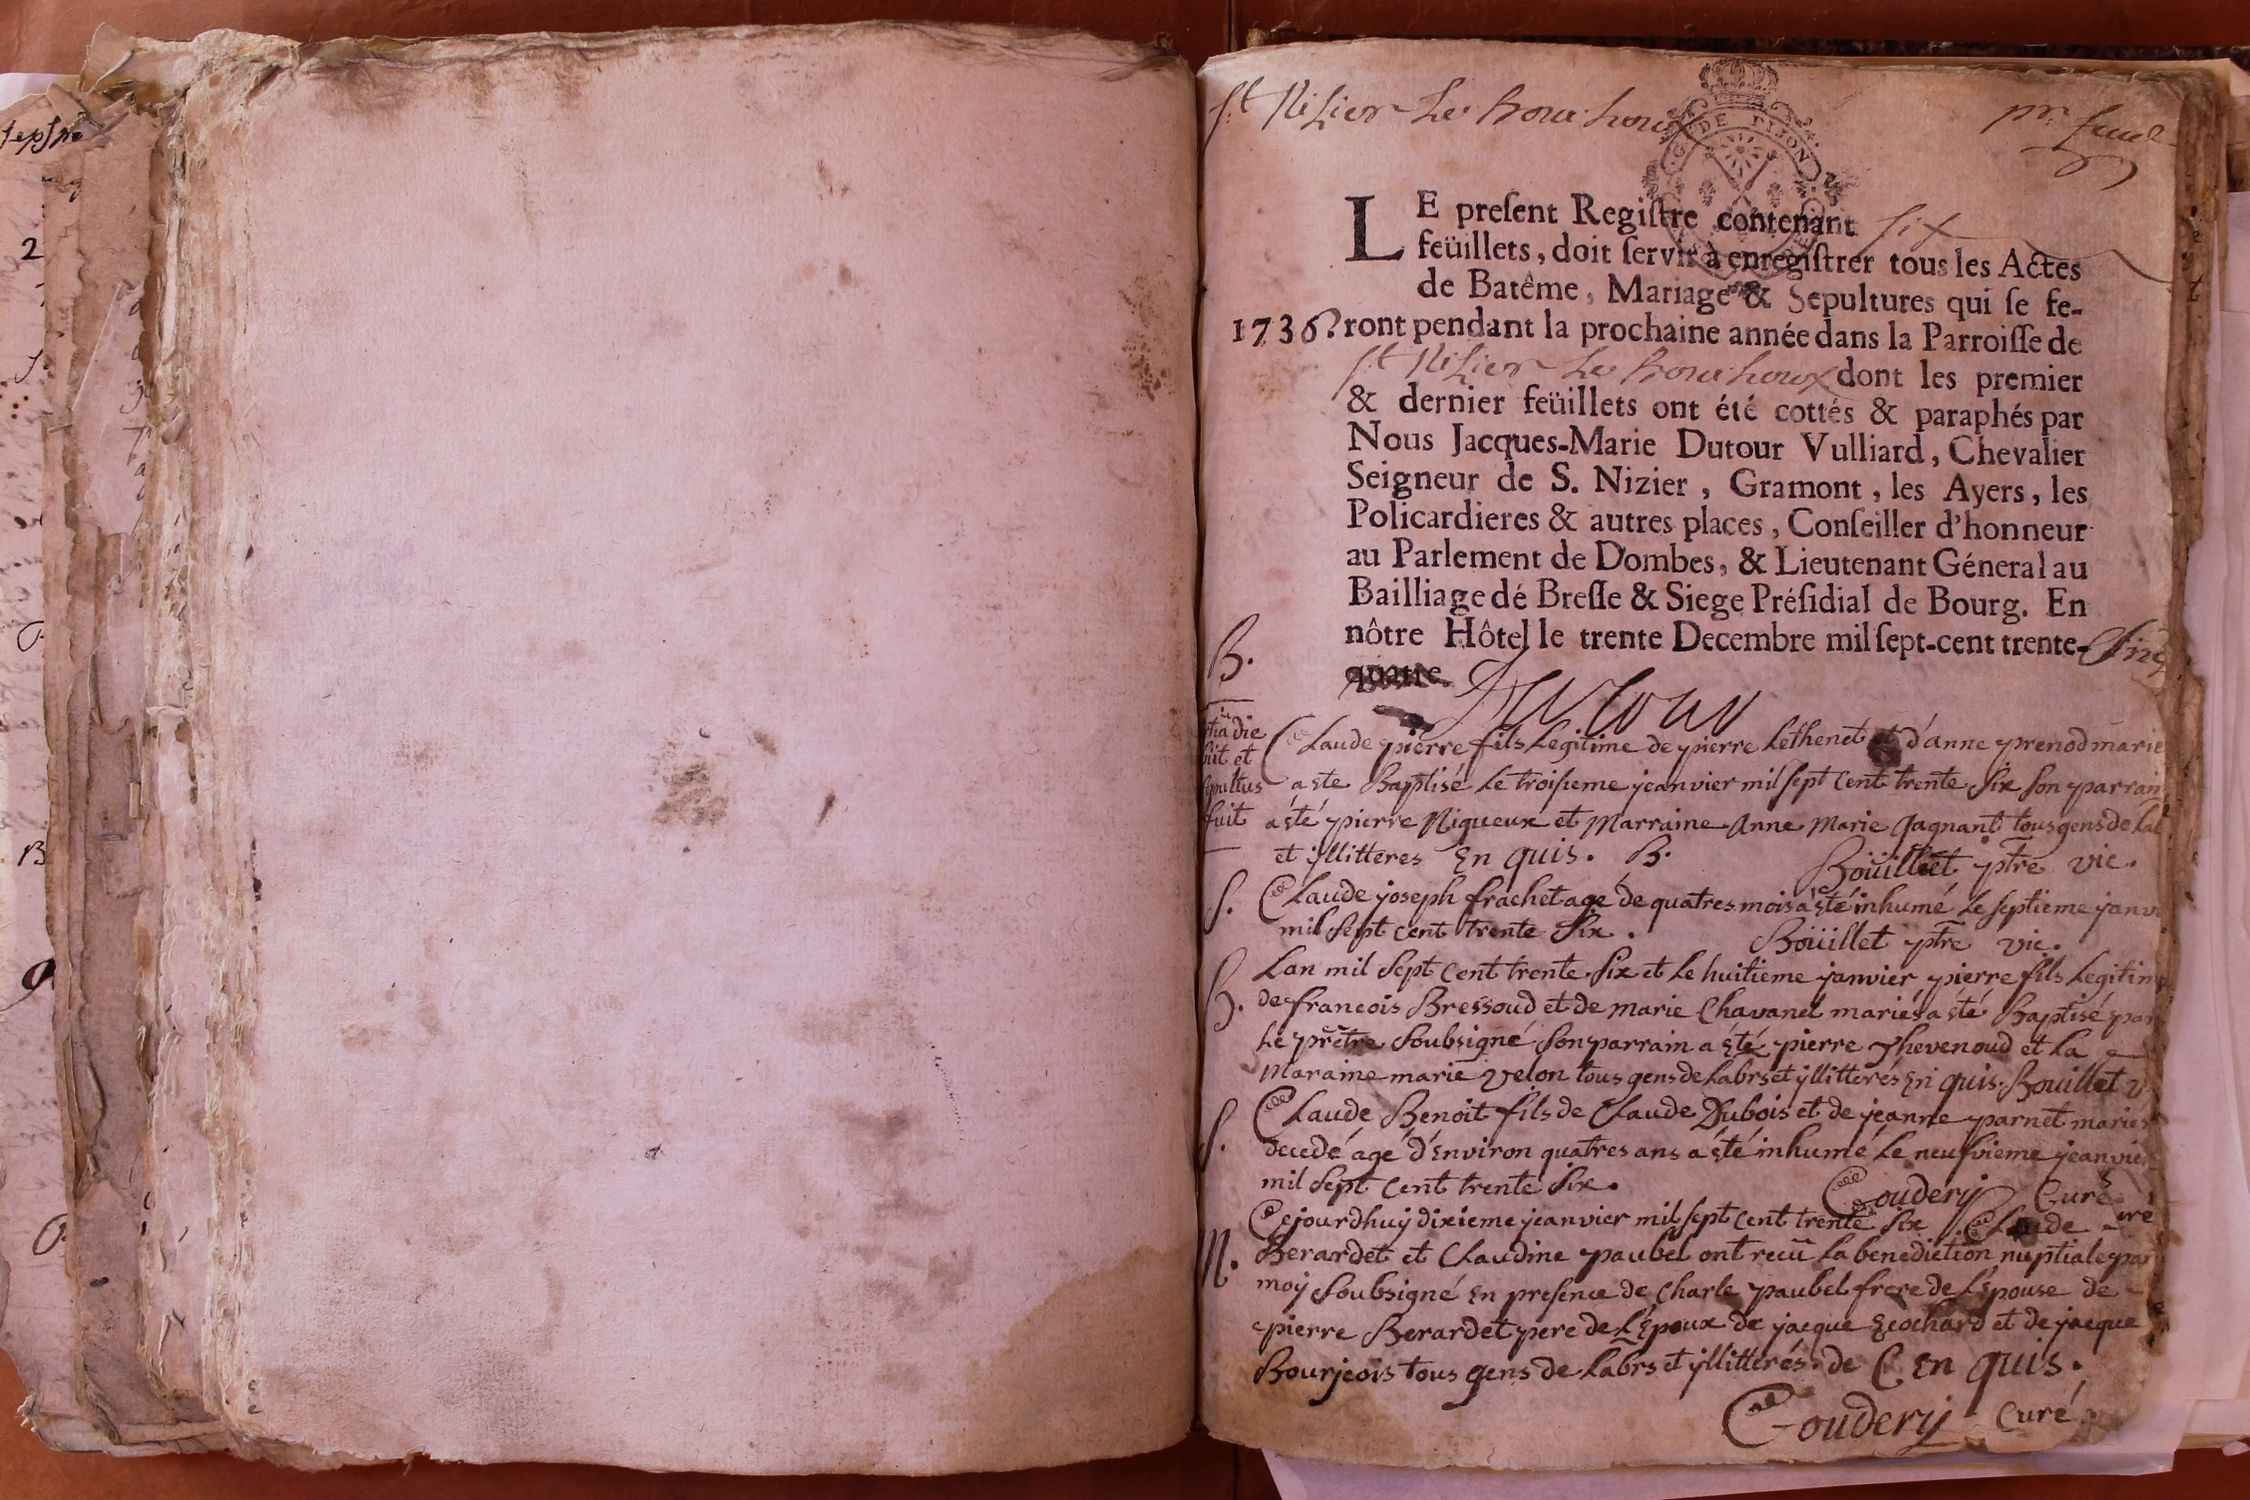 2
St Nisier Le Bouchoux
pr. feuil
G. DE DIJON
LE preſent Regiſtre contenant six
feüillets, doit ſervir à enregiſtrer tous les Actes
de Batême, Mariage & Sepultures qui ſe fe-
1736 ront pendant la prochaine année dans la Parroiſſe de
St Nisier Le Bouchoux dont les premier
& dernier feüillets ont été cottés & paraphés par
Nous Jacques-Marie Dutour Vulliard, Chevalier
Seigneur de S. Nizier, Gramont, les Ayers, les
Policardieres & autres places, Conſeiller d'honneur
au Parlement de Dombes, & Lieutenant Géneral au
Bailliage dé Breſſe & Siege Préſidial de Bourg. En
nôtre Hôtel le trente Decembre mil ſept-cent trente-cinq
quatre.
Dutour
B.
die
et
fuit
Claude pierre fils Legitime de pierre Lethenet et d'anne prenod marie
a este Baptisé Le troisieme jeanvier mil sept cent trente six son parrain
á sté pierre Niqueux et Marraine Anne Marie Gagnant tous gens de
et yllitteres En quis. B. Boüillet ptre vic.
S. Claude joseph frachet agé de quatres mois a sté inhumé Le septieme
mil sept cent trente six. Boüillet ptre vic.
B. Lan mil sept cent trente six et Le huitieme janvier pierre fils
de francois Bressoud et de marie Chavanel mariés a sté Baptisé par
Le prètre soubsigné son parrain a sté pierre Thevenoud et La
Maraine marie Velon tous gens de Labrs et yllitterés En quis. Bouillet
S. Claude Benoit fils de Claude Dubois et de jeanne parnet mariés
decedé agé d'Environ quatres ans a sté inhumé Le neufvieme
mil sept cent trente six. Coudery Curé
M. Cejourdhuy dixieme jeanvier mil sept cent trente six Claude
Berardet et Claudine paubel ont recü La benediction nuptiale par
moy soubsigné en presence de Charle paubel frere de L'Epouse de
pierre Berardet pere de L'Epoux de jacque Ecochard et de jacque
Bourjeois tous gens de Labrs et yllitterés de C En quis.
Coudery Curé